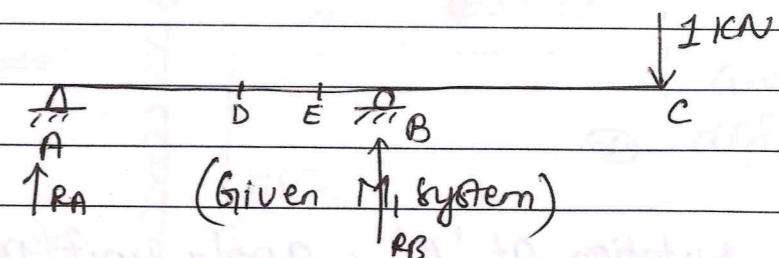 1 KN
D E B C
A
RA (Given M, system)
RB